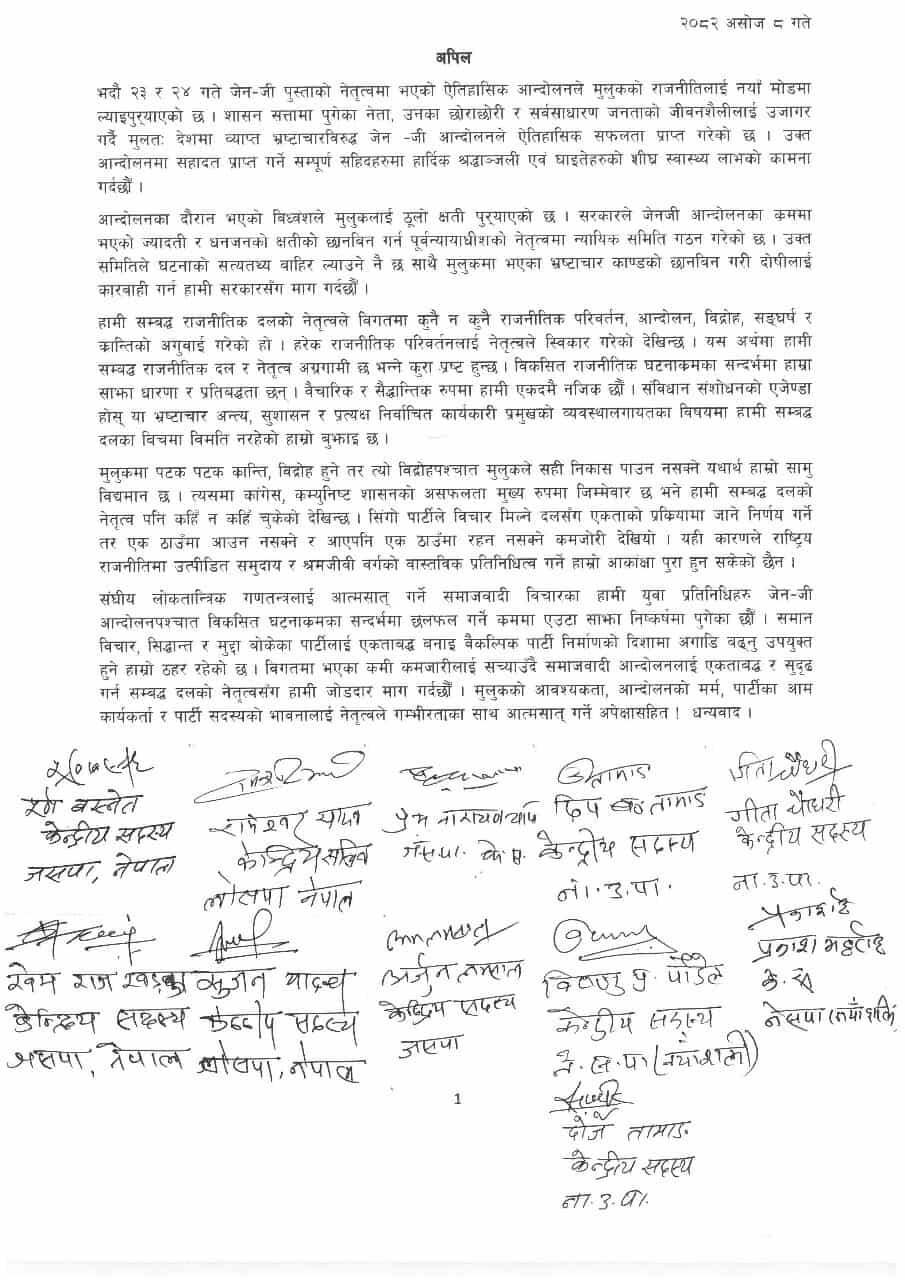 २०८२ असोज ८ गते
अपिल
भदौ २३ र २४ गते जेन-जी पुस्ताको नेतृत्वमा भएको ऐतिहासिक आन्दोलनले मुलुकको राजनीतिलाई नयाँ मोडमा
ल्याइपुर्‍याएको छ । शासन सत्तामा पुगेका नेता, उनका छोराछोरी र सर्वसाधारण जनताको जीवनशैलीलाई उजागर
गर्दै मुलतः देशमा व्याप्त भ्रष्टाचारविरुद्ध जेन -जी आन्दोलनले ऐतिहासिक सफलता प्राप्त गरेको छ । उक्त
आन्दोलनमा सहादत प्राप्त गर्ने सम्पूर्ण सहिदहरुमा हार्दिक श्रद्धाञ्जली एवं घाइतेहरुको शीघ्र स्वास्थ्य लाभको कामना
गर्दछौं ।
आन्दोलनका दौरान भएको बिध्वंशले मुलुकलाई ठूलो क्षती पुर्‍याएको छ । सरकारले जेनजी आन्दोलनका क्रममा
भएको ज्यादती र धनजनको क्षतीको छानबिन गर्न पूर्वन्यायाधीशको नेतृत्वमा न्यायिक समिति गठन गरेको छ । उक्त
समितिले घटनाको सत्यतथ्य वाहिर ल्याउने नै छ साथै मुलुकमा भएका भ्रष्टाचार काण्डको छानबिन गरी दोषीलाई
कारवाही गर्न हामी सरकारसँग माग गर्दछौं ।
हामी सम्बद्ध राजनीतिक दलको नेतृत्वले विगतमा कुनै न कुनै राजनीतिक परिवर्तन, आन्दोलन, विद्रोह, सङ्घर्ष र
क्रान्तिको अगुवाई गरेको हो । हरेक राजनीतिक परिवर्तनलाई नेतृत्वले स्विकार गरेको देखिन्छ । यस अर्थमा हामी
सम्बद्ध राजनीतिक दल र नेतृत्व अग्रगामी छ भन्ने कुरा प्रष्ट हुन्छ । विकसित राजनीतिक घटनाक्रमका सन्दर्भमा हाम्रा
साझा धारणा र प्रतिबद्धता छन् । वैचारिक र सैद्धान्तिक रुपमा हामी एकदमै नजिक छौं । संविधान संशोधनको एजेण्डा
होस् या भ्रष्टाचार अन्त्य, सुशासन र प्रत्यक्ष निर्वाचित कार्यकारी प्रमुखको व्यवस्थालगायतका विषयमा हामी सम्बद्ध
दलका विचमा विमति नरहेको हाम्रो बुझाइ छ ।
मुलुकमा पटक पटक क्रान्ति, विद्रोह हुने तर त्यो विद्रोहपश्चात मुलुकले सही निकास पाउन नसक्ने यथार्थ हाम्रो सामु
विद्यमान छ । त्यसमा कांग्रेस, कम्युनिष्ट शासनको असफलता मुख्य रुपमा जिम्मेवार छ भने हामी सम्बद्ध दलको
नेतृत्व पनि कहिँ न कहिँ चुकेको देखिन्छ । सिंगो पार्टीले विचार मिल्ने दलसँग एकताको प्रक्रियामा जाने निर्णय गर्ने
तर एक ठाउँमा आउन नसक्ने र आएपनि एक ठाउँमा रहन नसक्ने कमजोरी देखियो । यही कारणले राष्ट्रिय
राजनीतिमा उत्पीडित समुदाय र श्रमजीवी वर्गको वास्तविक प्रतिनिधित्व गर्ने हाम्रो आकांक्षा पुरा हुन सकेको छैन ।
संघीय लोकतान्त्रिक गणतन्त्रलाई आत्मसात् गर्ने समाजवादी विचारका हामी युवा प्रतिनिधिहरु जेन-जी
आन्दोलनपश्चात विकसित घटनाक्रमका सन्दर्भमा छलफल गर्ने क्रममा एउटा साझा निष्कर्षमा पुगेका छौं । समान
विचार, सिद्धान्त र मुद्दा बोकेका पार्टीलाई एकताबद्ध बनाइ वैकल्पिक पार्टी निर्माणको दिशामा अगाडि बढ्नु उपयुक्त
हुने हाम्रो ठहर रहेको छ । विगतमा भएका कमी कमजारीलाई सच्याउँदै समाजवादी आन्दोलनलाई एकताबद्ध र सुदृढ
गर्न सम्बद्ध दलको नेतृत्वसँग हामी जोडदार माग गर्दछौं । मुलुकको आवश्यकता, आन्दोलनको मर्म, पार्टीका आम
कार्यकर्ता र पार्टी सदस्यको भावनालाई नेतृत्वले गम्भीरताका साथ आत्मसात् गर्ने अपेक्षासहित ! धन्यवाद ।
बस्नेत
केन्द्रीय सदस्य
जसपा, नेपाल
रामेश्वर यादव
केन्द्रिय सचिव
लोसपा नेपाल
प्रेम नारायण
जसपा. के.स.
तामाङ
केन्द्रीय सदस्य
ना.उ.पा.
गीता चौधरी
गीता चौधरी
केन्द्रीय सदस्य
ना.उ.पा.
खेम राज खड्का
केन्द्रिय सदस्य
जसपा, नेपाल
सुजन यादव
केन्द्रीय सदस्य
लोसपा, नेपाल
अर्जुन लामसाल
केन्द्रिय सदस्य
जसपा
विष्णु प्र. पौडेल
केन्द्रीय सदस्य
ने.स.पा (नयाँशक्ति)
प्रकाश भट्टराई
के.स.
नेसपा (नयाँशक्ति)
1
दोर्जे तामाङ
केन्द्रीय सदस्य
ना.उ.पा.